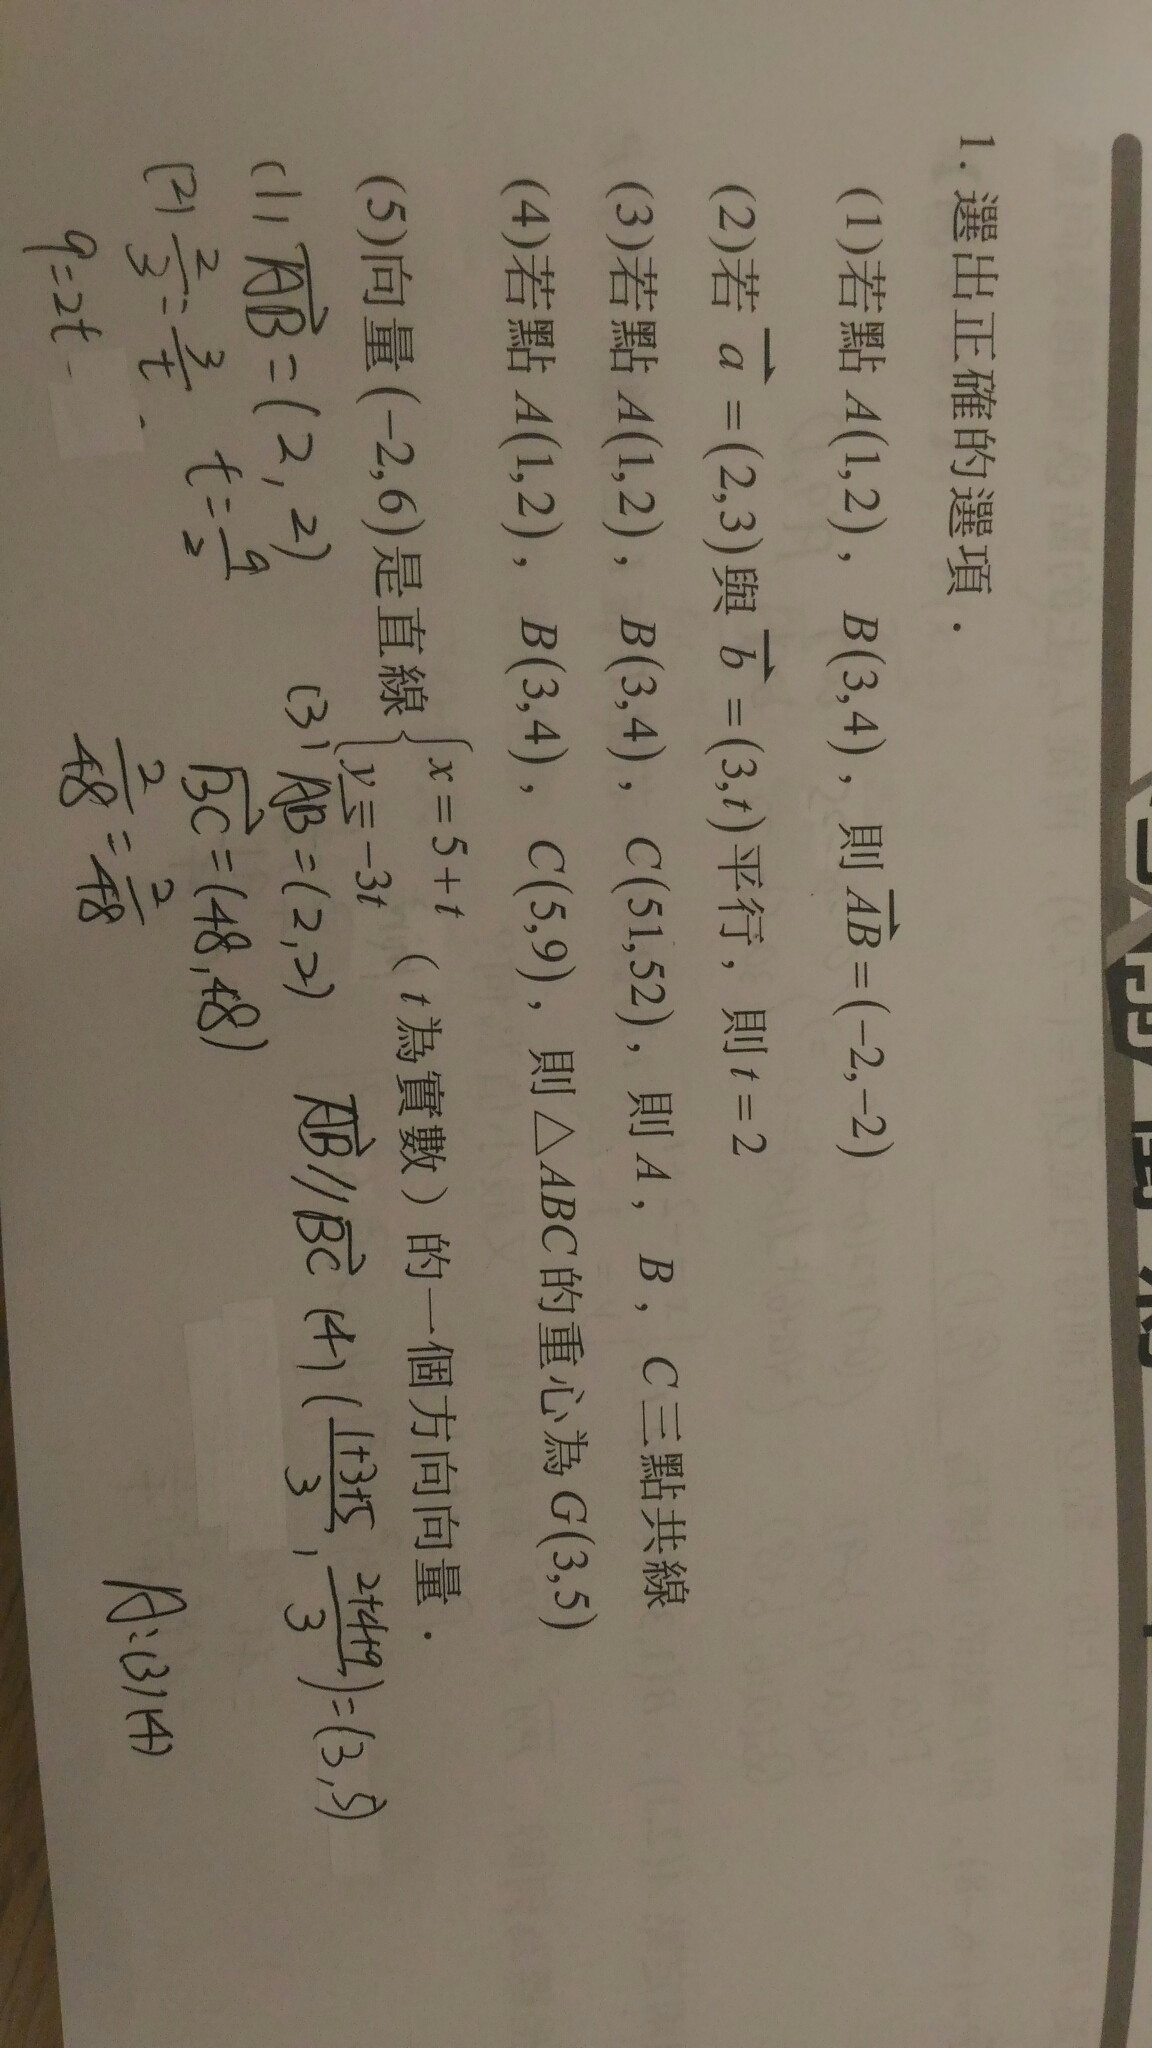 1. 選出正確的選項．
(1)若點 A(1,2)，B(3,4)，則 \overrightarrow{AB}=(−2,−2)
(2)若 \vec{a}=(2,3)與 \vec{b}=(3,t)平行，則 t=2
(3)若點 A(1,2)，B(3,4)，C(51,52)，則 A，B，C三點共線
(4)若點 A(1,2)，B(3,4)，C(5,9)，則△ABC的重心為 G(3,5)
(5)向量(−2,6)是直線{x=5+t
y=−3t （t為實數）的一個方向向量．
(1) \overrightarrow{AB}=(2,2)
(2) 2/3=3/t
9=2t
t=9/2
(3) \overrightarrow{AB}=(2,2)
\overrightarrow{BC}=(48,48)
2/48=2/48
\overrightarrow{AB}//\overrightarrow{BC}
(4) ((1+3+5)/3,(2+4+9)/3)=(3,5)
A:(3)(4)